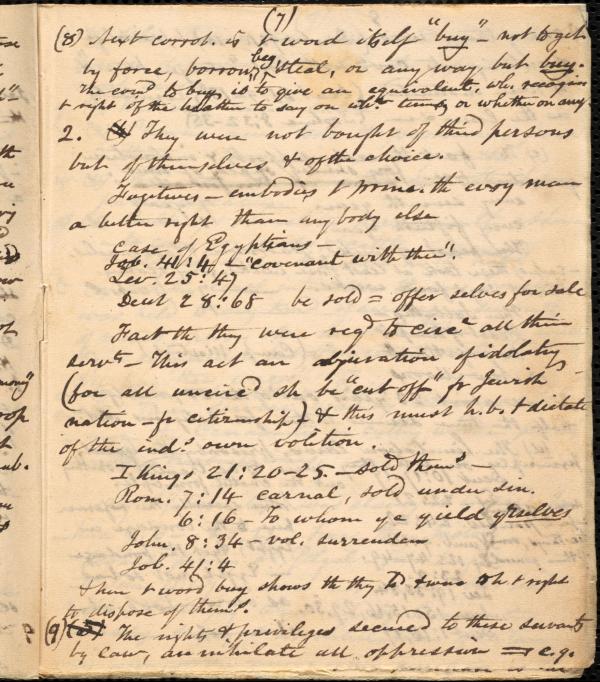 (7)
(8) Next corrob. is t word itself "buy" – not to get
by force, borrow, beg, steal, or any way but buy.
The com'd to buy, is to give an equivalent, wh. recogn
t right of the heathen to say on wh. terms or whether on any.
2. They were not bought of third persons
but of themselves & of the choice.
Fugitives – embodies t princ. th every man
a better right than any body else
Case of Egyptians –
Job. 41:4 – "covenant with thee".
Lev. 25:47
Deut 28:68 be sold = offer selves for sale
Fact th they were req'd to circ. all their
serv'ts – This act an abjuration of idolatry –
(for all uncirc'd sh be "cut off" fr Jewish
nation – fr citizenship) & this must h. b. t dictate
of the ind's own volition.
I Kings 21:20–25. – sold them –
Rom. 7:14 carnal, sold under sin.
6:16 To whom ye yield yrselves
John. 8:34 – vol. surrender
Job. 41:4
t word buy shows th they t right
to dispose of thems.
(9) The rights & privileges secured to these servants
by law, annihilate all oppression = e.g.